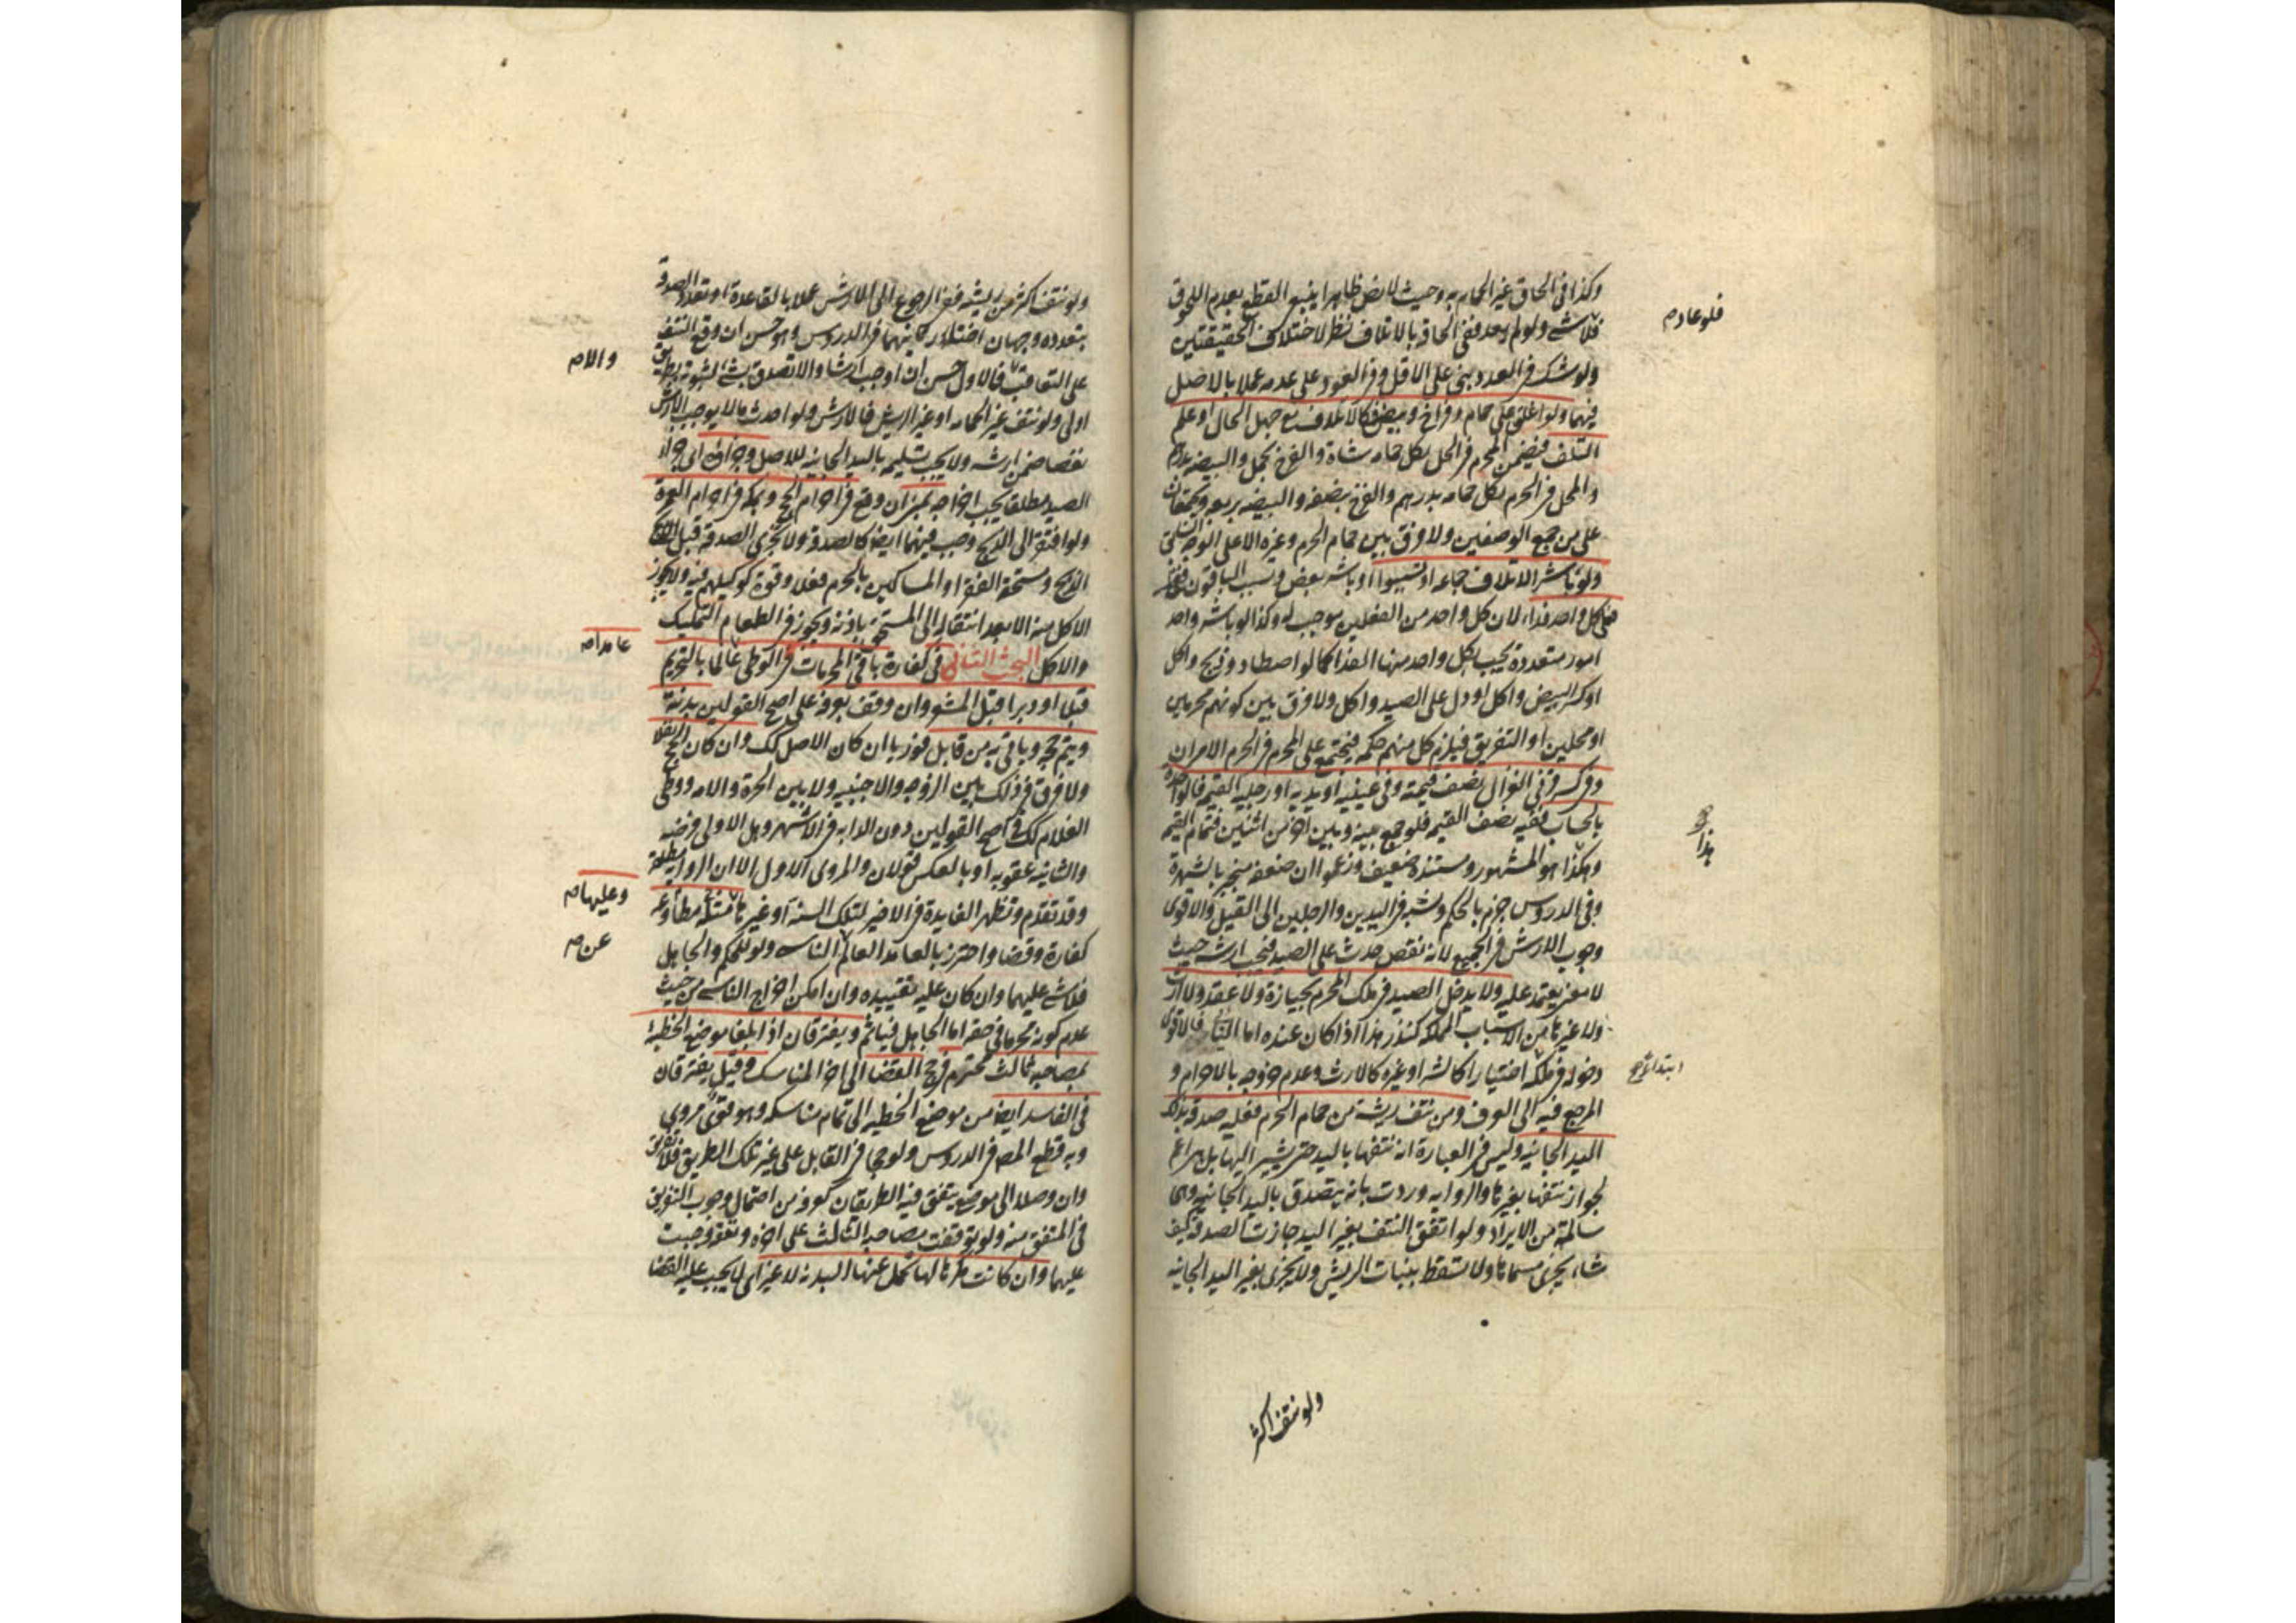 وكذا في الحاق غير الحمام به وحيث لا نص ظاهرا ينبغي القطع بعدم اللحوق
فلو عاد م
فلا شے ولو لم يعد ففي الحاقه بالاتلاف نظر لاختلاف الحقيقتين
ولو شك في العدد بنى على الاقل وفي العود على عدمه عملا بالاصل
فيهما ولو اغلق على حمام وفراخ وبيض فكالاتلاف مع جهل الحال او علم
التلف فيضمن المحرم في الحل بكل حمامه شاة والفرخ بحمل والبيضه بدرهم
والمحل في الحرم بكل حمامه بدرهم والفرخ بنصفه والبيضه بربعه ويجتمعان
على من جمع الوصفين ولا فرق بين حمام الحرم وغيره الا على الوجه
ولو باشر الاتلاف جماعه او تسببوا او باشر بعض وتسبب الباقون فعلى
كل واحد فداء لان كل واحد من الفعلين موجب له وكذا لو باشر واحد
امور متعددة يجب بكل واحد منها الفداء كما لو اصطاد وذبح واكل
او كسر البيض واكل او دل على الصيد واكل ولا فرق بين كونهم محرمين
او محلين او التفريق فيلزم كل منهم حكمه فيجتمع على المحرم في الحرم الامران
وفي كسر قرني الغزال نصف قيمته وفي عينيه او يديه او رجليه القيمه والواحده
بالحساب ففيه نصف القيمه فلو جمع بينه وبين اخر من اثنين فتمام القيمه
هذا
وهكذا هو المشهور ومستنده ضعيف وزعموا ان ضعفه منجبر بالشهرة
وفي الدروس جزم بالحكم ونسبه في اليدين والرجلين الى القيل والاقوى
وجوب الارش في الجميع لانه نقص حدث على الصيد فيجب ارشه حيث
لا معين يعتمد عليه ولا يدخل الصيد في ملك المحرم بحيازة ولا عقد ولا ارث
ولا غيرها من الاسباب المملكه كنذر هذا اذا كان عنده اما النائي فالاقوى
دخوله في ملكه اختيارا كالشراء وغيره كالارث وعدم خروجه بالاحرام و
ابتداء
المرجع فيه الى العرف ومن نتف ريشة من حمام الحرم فعليه صدقة بتلك
اليد الجانيه وليس في العبارة انه نتفها باليد حتى يشير اليها بل هي اعم
لجواز نتفها بغيرها والروايه وردت بانه يتصدق باليد الجانيه وهى
سالمة من الايراد ولو اتفق النتف بغير اليد جازت الصدقه كيف
شاء ويجزى مسماها ولا تسقط بنبات الريش ولا يجزى بغير اليد الجانيه
ولو نتف اكثر
ولو نتف اكثر من ريشه ففي الرجوع الى الارش عملا بالقاعدة او تعدد الصدقه
بتعدده وجهان اختار ثانيهما في الدروس وهو حسن ان وقع النتف
والا م
على التعاقب فالاول حسن ان اوجب ارشا والا تصدق بشئ لثبوته بطريق
اولى ولو نتف غير الحمامه او غير الريش فالارش ولو احدث ما لا يوجب الارش
نقصا ضمن ارشه ولا يجب تسليمه باليد الجانيه للاصل وجزاؤه اى جزاء
الصيد مطلقا يجب اخراجه بمنى ان وقع في احرام الحج وبمكه في احرام العمرة
ولو افتقر الى الذبح وجب فيهما ايضا كالصدقه ولا تجزى الصدقه قبل الذبح
الذبح ومستحقه الفقراء والمساكين بالحرم فعلا وقوة كوكيلهم فيه ولا يجوز
الاكل منه الا بعد انتقاله الى المستحق باذنه ويجوز في الطعام التمليك
عامدا م
والاكل البحث الثاني في كفارة باقي المحرمات في الوطى عالما بالتحريم
قبلا او دبرا قبل المشعر وان وقف بعرفه على اصح القولين بدنة
ويتم حجه وياتي به من قابل فورا ان كان الاصل كك وان كان الحج نفلا
ولا فرق في ذلك بين الزوجه والاجنبيه ولا بين الحرة والامه ووطى
الغلام كك في اصح القولين دون الدابه في الاشهر وهل الاولى فرضه
والثانيه عقوبه او بالعكس قولان والمروى الاول الا ان الروايه مقطوعه
وعليها م
وقد تقدم وتظهر الفايدة في الاخير لتلك السنه او غيرها مطاوعه
عن م
كفارة وقضا واحترز بالعامد العالم الناسى ولو للحكم والجاهل
فلا شے عليهما وان كان عليه تقييده وان امكن اخراج الناسى من حيث
عدم كونه محرما في حقه اما الجاهل فياثم ويفترقان اذا بلغا موضع الخطيئه
بمصاحبه ثالث محترم في حج القضا الى اخر المناسك وقيل يفترقان
في الفاسد ايضا من موضع الخطيه الى تمام مناسكه وهو قوى مروى
وبه قطع المصه في الدروس ولو حجا في القابل على غير تلك الطريق فلا تفريق
وان وصلا الى موضع يتفق فيه الطريقان كعرفه مع احتمال وجوب التفريق
في المتفق منه ولو توقفت مصاحبه الثالث على اجره ونفقه وجبت
عليهما وان كانت مكرها لها تحمل عنها البدنه لا غير اى لا يجب عليه القضا